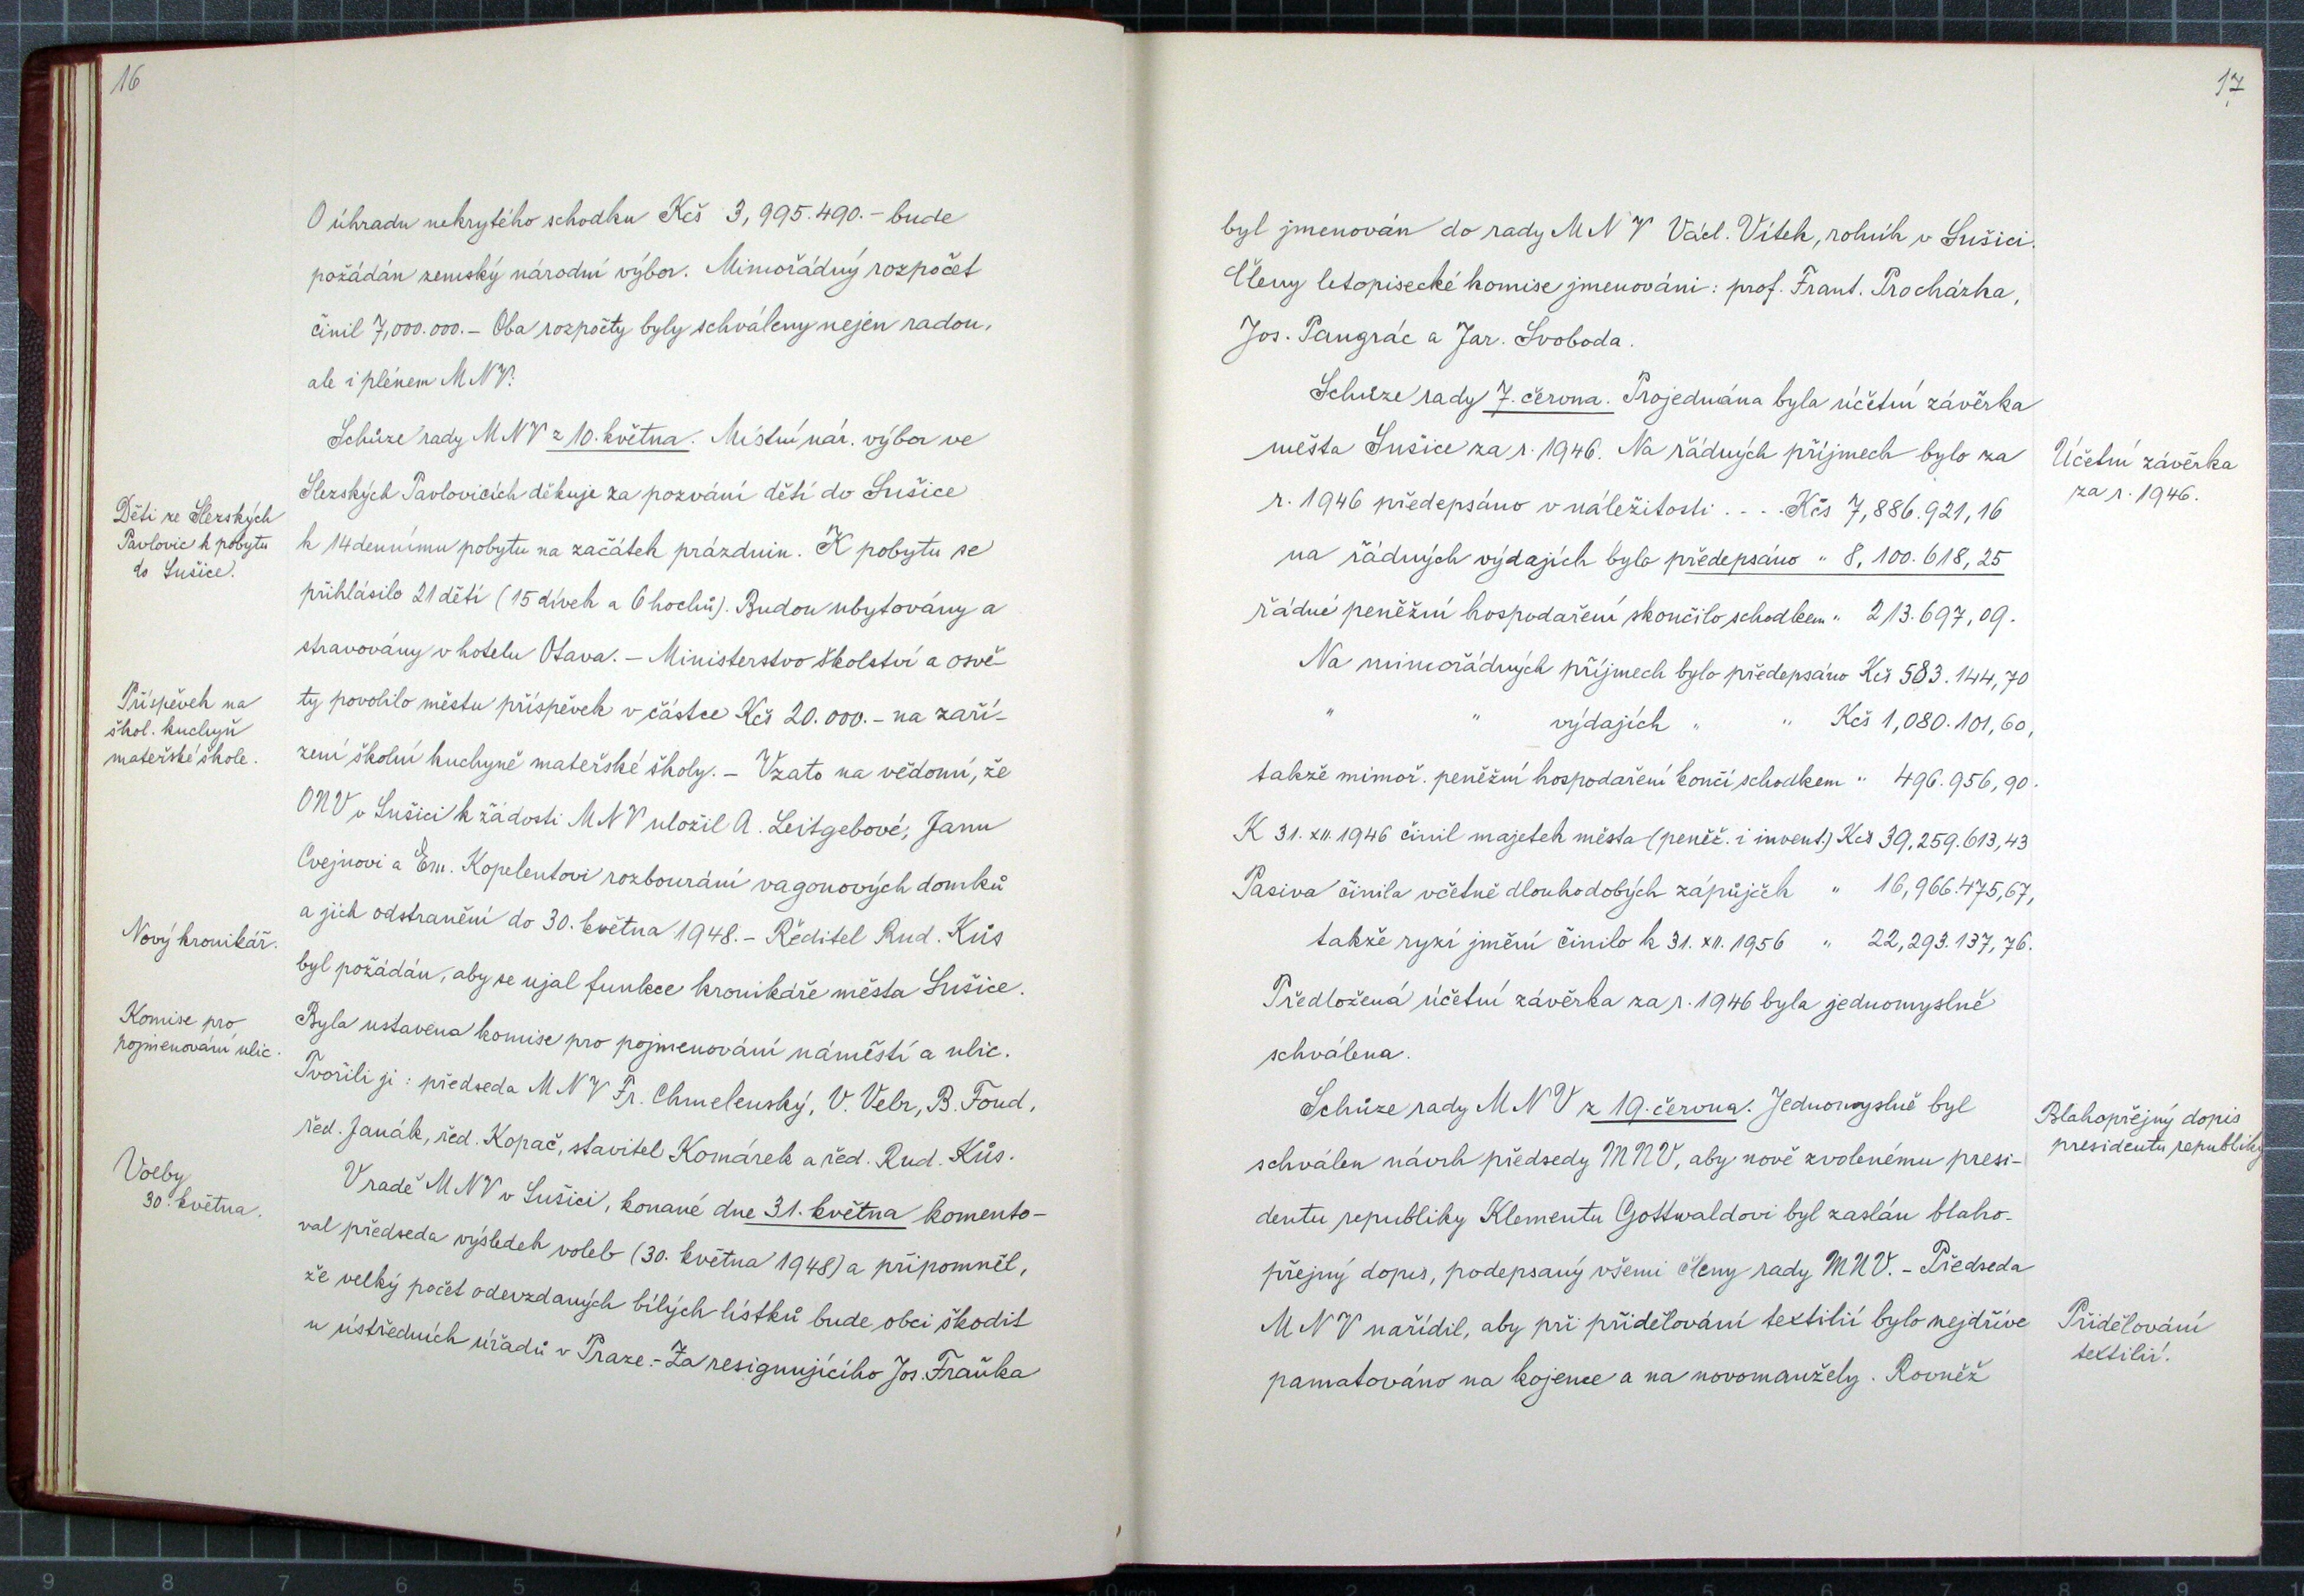 16
O úhradu nekrytého schodku Kčs 3,995.490.- bude
požádán zemský národní výbor. Mimořádný rozpočet
činil 7,000.000.- Oba rozpočty byly schváleny nejen radou,
ale i plénem MNV.
Schůze rady MNV z 10. května. Místní nár. výbor ve
Slezských Pavlovicích děkuje za pozvání dětí do Sušice
Děti ze Slezských
Pavlovic k pobytu
do Sušice.
k 14dennímu pobytu na začátek prázdnin. K pobytu se
přihlásilo 21 dětí (15 dívek a 6 hochů). Budou ubytovány a
stravovány v hotelu Otava. - Ministerstvo školství a osvě-
Příspěvek na
škol. kuchyň
mateřské škole.
ty povolilo městu příspěvek v částce Kčs 20.000.- na zaří-
zení školní kuchyně mateřské školy. - Vzato na vědomí, že
ONV v Sušici k žádosti MNV uložil A. Leitgebové, Janu
Cvejnovi a Em. Kopelentovi rozbourání vagonových domků
a jich odstranění do 30. května 1948. - Ředitel Rud. Kůs
Nový kronikář.
byl požádán, aby se ujal funkce kronikáře města Sušice.
Komise pro
pojmenování ulic.
Byla ustavena komise pro pojmenování náměstí a ulic.
Tvořili ji: předseda MNV Fr. Chmelenský, V. Vebr, B. Foud,
řed. Janák, řed. Kopač, stavitel Komárek a řed. Rud. Kůs.
Volby
30. května.
V radě MNV v Sušici, konané dne 31. května komento-
val předseda výsledek voleb (30. května 1948) a připomněl,
že velký počet odevzdaných bílých lístků bude obci škodit
u ústředních úřadů v Praze. - Za resignujícího Jos. Fraňka
17
byl jmenován do rady MNV Václ. Vítek, rolník v Sušici.
Členy letopisecké komise jmenováni: prof. Frant. Procházka,
Jos. Pangrác a Jar. Svoboda.
Schůze rady 7. června. Projednána byla účetní závěrka
města Sušice za r. 1946. Na řádných příjmech bylo za
Účetní závěrka
za r. 1946.
r. 1946 předepsáno v náležitosti .... Kčs 7,886.921,16
na řádných výdajích bylo předepsáno " 8,100.618,25
řádné peněžní hospodaření skončilo schodkem " 213.697,09.
Na mimořádných příjmech bylo předepsáno Kčs 583.144,70
" " výdajích " " Kčs 1,080.101,60,
takže mimoř. peněžní hospodaření končí schodkem " 496.956,90.
K 31. XII. 1946 činil majetek města (peněž. i invent.) Kčs 39,259.613,43
Pasiva činila včetně dlouhodobých zápůjček " 16,966.475,67,
takže ryzí jmění činilo k 31. XII. 1956 " 22,293.137,76.
Předložená účetní závěrka za r. 1946 byla jednomyslně
schválena.
Schůze rady MNV z 19. června. Jednomyslně byl
Blahopřejný dopis
presidentu republiky
schválen návrh předsedy MNV, aby nově zvolenému presi-
dentu republiky Klementu Gottwaldovi byl zaslán blaho-
přejný dopis, podepsaný všemi členy rady MNV. - Předseda
MNV nařídil, aby při přidělování textilií bylo nejdříve
Přidělování
textilií.
pamatováno na kojence a na novomanžely. Rovněž